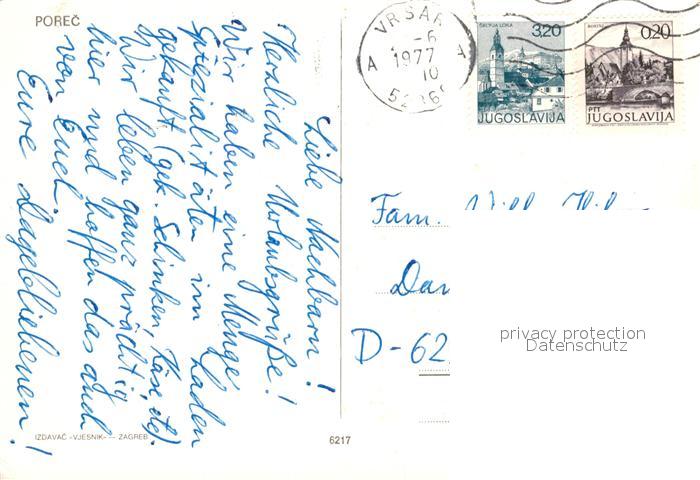 POREČ
Liebe Nachbarn!
Herzliche Urlaubsgrüße!
Wir haben eine Menge
Spezialitäten im Laden
gekauft (gek. Schinken, Käse, etc).
Wir leben ganz prächtig
hier und hoffen das auch
von Euch.
Eure Dagebliebenen!
IZDAVAČ «VJESNIK» — ZAGREB
6217
VRSAR
-6
1977
10
A A
ŠKOFJA LOKA
3,20
JUGOSLAVIJA
0,20
PTT
JUGOSLAVIJA
Fam.
D-62
privacy protection
Datenschutz